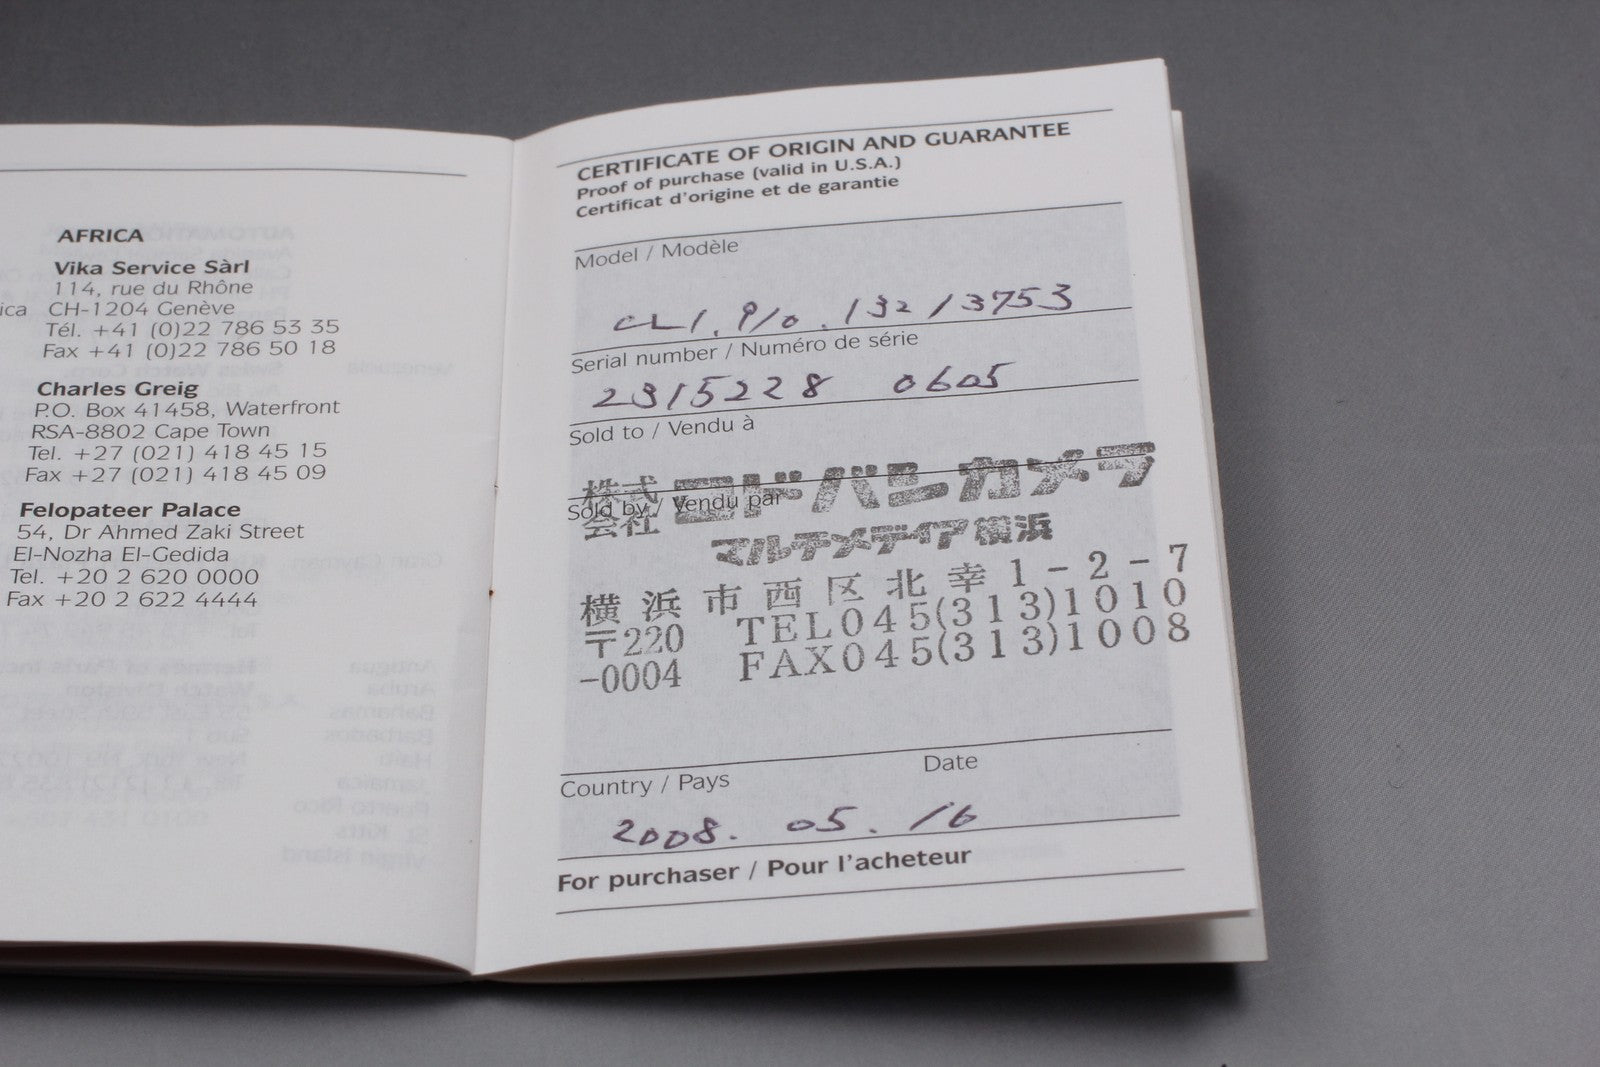 AFRICA
Vika Service Sàrl
114, rue du Rhône
ica CH-1204 Genève
Tél. +41 (0)22 786 53 35
Fax +41 (0)22 786 50 18
Charles Greig
P.O. Box 41458, Waterfront
RSA-8802 Cape Town
Tel. +27 (021) 418 45 15
Fax +27 (021) 418 45 09
Felopateer Palace
54, Dr Ahmed Zaki Street
El-Nozha El-Gedida
Tel. +20 2 620 0000
Fax +20 2 622 4444
CERTIFICATE OF ORIGIN AND GUARANTEE
Proof of purchase (valid in U.S.A.)
Certificat d'origine et de garantie
Model / Modèle
CL1.910.132/3753
Serial number / Numéro de série
2315228 0605
Sold to / Vendu à
株式会社 ヨドバシカメラ
Sold by / Vendu par
マルチメディア横浜
横浜市西区北幸1-2-7
〒220 TEL045(313)1010
-0004 FAX045(313)1008
Country / Pays Date
2008. 05. 16
For purchaser / Pour l'acheteur